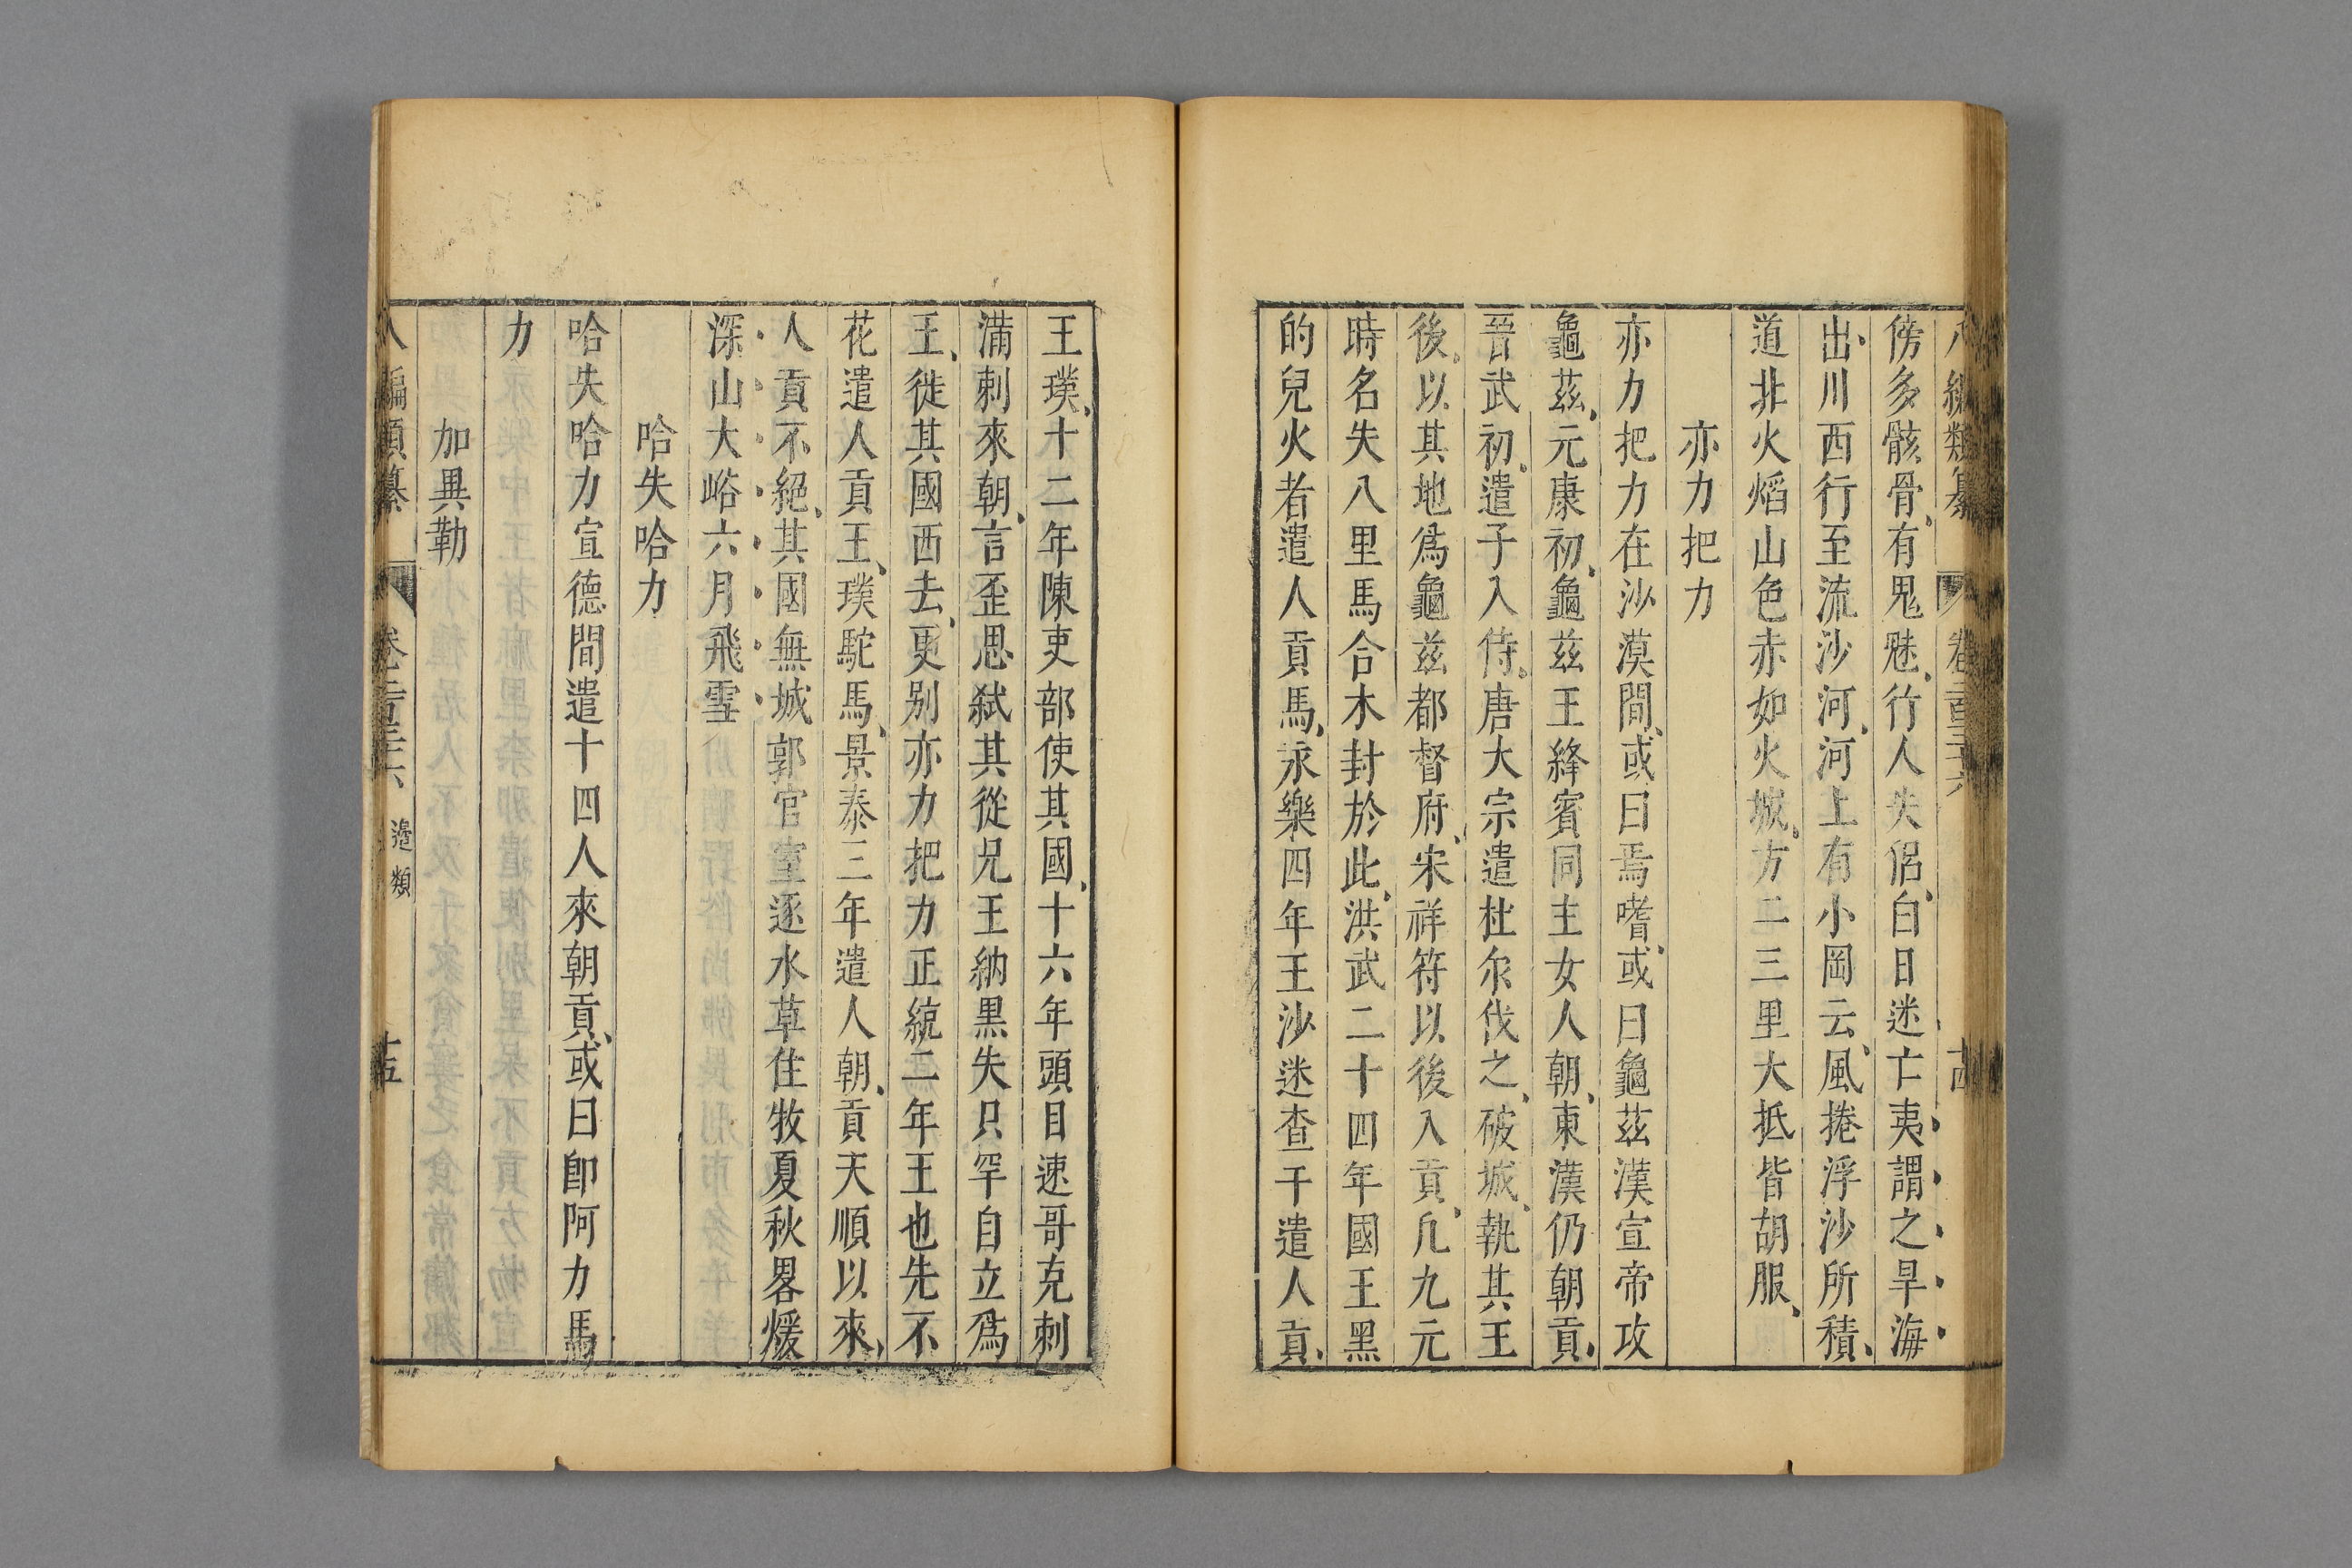 八編類纂 卷二百三十六 十四
傍多骸骨有鬼魅行人失侶白日迷亡夷謂之旱海
出川西行至流沙河河上有小岡云風捲浮沙所積
道北火熖山色赤如火城方二三里大抵皆胡服
亦力把力
亦力把力在沙漠間或曰焉嗜或曰龜茲漢宣帝攻
龜茲元康初龜茲王絳賓同主女人朝東漢仍朝貢
晉武初遣子入侍唐大宗遣杜尒伐之破城執其王
後以其地爲龜茲都督府宋祥符以後入貢凡九元
時名失八里馬合木封於此洪武二十四年國王黑
的兒火者遣人貢馬永樂四年王沙迷查干遣人貢
王璞十二年陳吏部使其國十六年頭目速哥克刺
滿刺來朝言歪思弑其從兄王納黒失只罕自立爲
王徙其國西去更别亦力把力正統二年王也先不
花遣人貢王璞駝馬景泰三年遣人朝貢天順以來
人貢不絕其國無城郭官室逐水草住牧夏秋畧煖
深山大峪六月飛雪
哈失哈力
哈失哈力宣德間遣十四人來朝貢或曰卽阿力馬
力
加異勒
八編類纂 卷二百三十六 邉類 十五